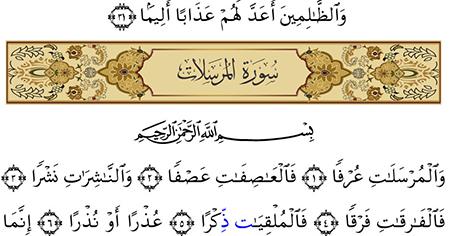 وَالظَّالِمِينَ أَعَدَّ لَهُمْ عَذَابًا أَلِيمًا ﴿٣١﴾
سُورَةُ المُرْسَلَات
بِسْمِ اللَّهِ الرَّحْمَٰنِ الرَّحِيمِ
وَالْمُرْسَلَاتِ عُرْفًا ﴿١﴾ فَالْعَاصِفَاتِ عَصْفًا ﴿٢﴾ وَالنَّاشِرَاتِ نَشْرًا ﴿٣﴾
فَالْفَارِقَاتِ فَرْقًا ﴿٤﴾ فَالْمُلْقِيَات ذِّكْرًا ﴿٥﴾ عُذْرًا أَوْ نُذْرًا ﴿٦﴾ إِنَّمَا